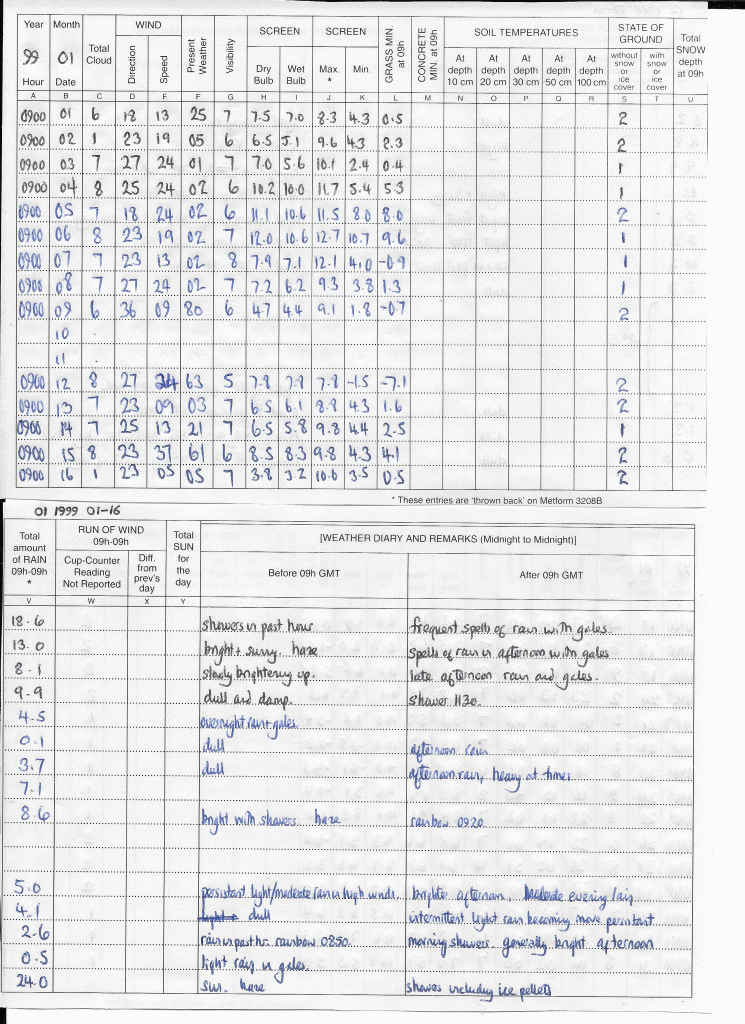 Year Month WIND SCREEN SCREEN SOIL TEMPERATURES STATE OF GROUND Total SNOW depth at 09h
99 01 Total Cloud Direction Speed Present Weather Visibility Dry Bulb Wet Bulb Max. * Min. GRASS MIN. at 09h CONCRETE MIN. at 09h At depth 10 cm At depth 20 cm At depth 30 cm At depth 50 cm At depth 100 cm without snow or ice cover with snow or ice cover
Hour Date
A B C D E F G H I J K L M N O P Q R S T U
0900 01 6 18 13 25 7 7.5 7.0 8.3 4.3 0.5 2
0900 02 1 23 19 05 6 6.5 5.1 9.6 4.3 2.3 2
0900 03 7 27 24 01 7 7.0 5.6 10.1 2.4 0.4 1
0900 04 8 25 24 02 6 10.2 10.0 11.7 5.4 5.3 1
0900 05 7 18 24 02 6 11.1 10.6 11.5 8.0 8.0 2
0900 06 8 23 19 02 7 12.0 10.6 12.7 10.7 9.6 1
0900 07 7 23 13 02 8 7.9 7.1 12.1 4.0 -0.9 1
0900 08 7 27 24 02 7 7.2 6.2 9.3 3.8 1.3 1
0900 09 6 36 09 80 6 4.7 4.4 9.1 1.8 -0.7 2
10
11
0900 12 8 27 24 63 5 7.8 7.8 7.8 -1.5 -7.1 2
0900 13 7 23 09 03 7 6.5 6.1 8.8 4.3 1.6 2
0900 14 7 25 13 21 7 6.5 5.8 9.8 4.4 2.5 1
0900 15 8 23 37 61 6 8.5 8.3 9.8 4.3 4.1 2
0900 16 1 23 05 05 7 3.8 3.2 10.6 3.5 0.5 2
* These entries are 'thrown back' on Metform 3208B
01 1999 01-16
Total amount of RAIN 09h-09h * RUN OF WIND 09h-09h Total SUN for the day [WEATHER DIARY AND REMARKS (Midnight to Midnight)]
Cup-Counter Reading Not Reported Diff. from prev's day Before 09h GMT After 09h GMT
V W X Y
18.6 showers in past hour frequent spells of rain with gales.
13.0 bright + sunny. haze spells of rain in afternoon with gales
8.1 slowly brightening up. late afternoon rain and gales.
9.9 dull and damp. shower 1130.
4.5 overnight rain + gales.
0.1 dull afternoon rain
3.7 dull afternoon rain, heavy at times
7.1
8.6 bright with showers haze rainbow 0920
5.0 persistant light/moderate rain in high winds. brighter afternoon. Moderate evening rain
4.1 light dull intermittent light rain becoming more persistant
2.6 rain in past hr. rainbow 0850. morning showers. generally bright afternoon
0.5 light rain in gales.
24.0 sun. haze showers including ice pellets